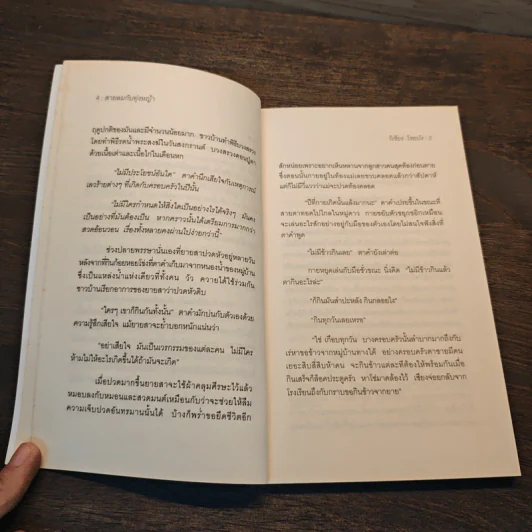 4 : สายลมกับทุ่งหญ้า
ฤดูปกติของมันและมีจำนวนน้อยมาก ชาวบ้านทำพิธีบวงสรวง
โดยทำพิธีรดน้ำพระสงฆ์ในวันสงกรานต์ บวงสรวงดอนปู่ตา
ด้วยเนื้อเค่าและเนื้อไก่ในเดือนหก
"ไม่มีประโยชน์อันใด" ตาคำนึกเสียใจกับเหตุการณ์
เลวร้ายต่างๆ ที่เกิดกับครอบครัวในปีนั้น
"ไม่มีใครกำหนดให้สิ่งใดเป็นอย่างไรได้จริงๆ มันคง
เป็นอย่างที่มันต้องเป็น หากคราวนั้นได้เตรียมการมากกว่า
สวดอ้อนวอน เรื่องทั้งหลายคงผ่านไปง่ายกว่านี้"
ช่วงปลายพรรษานั่นเองที่ยายสาปวดหัวอยู่หลายวัน
หลังจากที่กินก้อยหอยโข่งที่ตาคำเก็บมาจากหนองน้ำของหมู่บ้าน
ซึ่งเป็นแหล่งน้ำแห่งเดียวที่ทั้งคน วัว ควายได้ใช้รวมกัน
ชาวบ้านเรียกอาการของยายสาว่าปวดหัวดิบ
"ใครๆ เขาก็กินกันทั้งนั้น" ตาคำมักบ่นกับตัวเองด้วย
ความรู้สึกเสียใจ แม้ยายสาจะย้ำบอกหนักแน่นว่า
"อย่าเสียใจ มันเป็นเวรกรรมของแต่ละคน ไม่มีใคร
ห้ามไม่ให้อะไรเกิดขึ้นได้ถ้ามันจะเกิด"
เมื่อปวดมากขึ้นยายสาจะใช้ผ้าคลุมศีรษะไว้แล้ว
หมอบลงกับหมอนและสวดมนต์เหมือนกับว่าจะช่วยให้ลืม
ความเจ็บปวดอันทรมานนั้นได้ บ้างก็พร่ำขอยืดชีวิตอีก
สักหน่อยเพราะอยากเห็นหลานจากลูกสาวคนสุดท้องก่อนตาย
ซึ่งตอนนั้นกายอยู่ในท้องแม่
แต่ก็ไม่มีวี่แววว่าแม่จะปวดท้องคลอด
"ปีที่กายเกิดนั้นแล้งมากนะ" ตาคำเปรยขึ้นในขณะที่
สายตาทอดไปไกลในหมู่ดาว กายขยับตัวซุกเหมือน
จะเล่นอะไรสักอย่างอยู่กับมือของตัวเองโดยไม่สนใจฟังสิ่งที่
ตาคำพูด
"ไม่มีข้าวกินเลย" ตาคำยังเล่าต่อ
กายหยุดเล่นกับมือชั่วขณะ นิ่งคิด "ไม่มีข้าวกินแล้ว
ตากินอะไรล่ะ"
"ก็กินมันสำปะหลัง กินกลอยไง"
"กินทุกวันเลยเหรอ"
"ใช่ เกือบทุกวัน บางครอบครัวนั้นลำบากมากถึงกับ
เร่หาขอข้าวจากหมู่บ้านทางใต้ อย่างครอบครัวตาชายมีคน
เยอะสิบสี่สิบห้าคน จะกินข้าวแต่ละทีต้องให้พร้อมกันเมื่อ
กินเสร็จก็ล็อคประตูครัว หาโซ่มาคล้องไว้ เชียงจ่อยกลับจาก
โรงเรียนถึงกับกราบขอกินข้าวจากยาย"